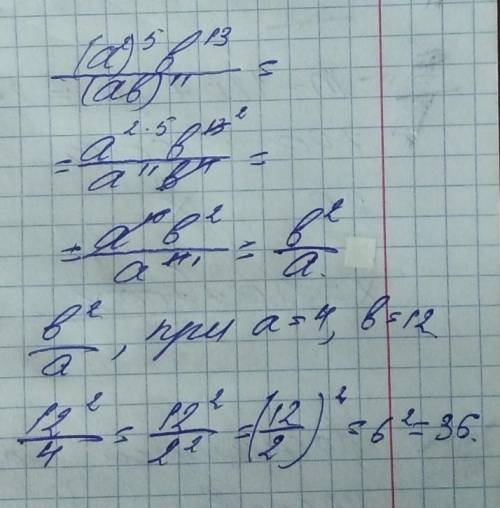 (a²)⁵ b¹³ / (ab)¹¹ =
= a²·⁵ b¹³ ² / a¹¹ b¹¹ =
= a¹⁰ b² / a¹¹ = b² / a.
b² / a, при a = 4, b = 12
12² / 4 = 12² / 2² = (12 / 2)² = 6² = 36.